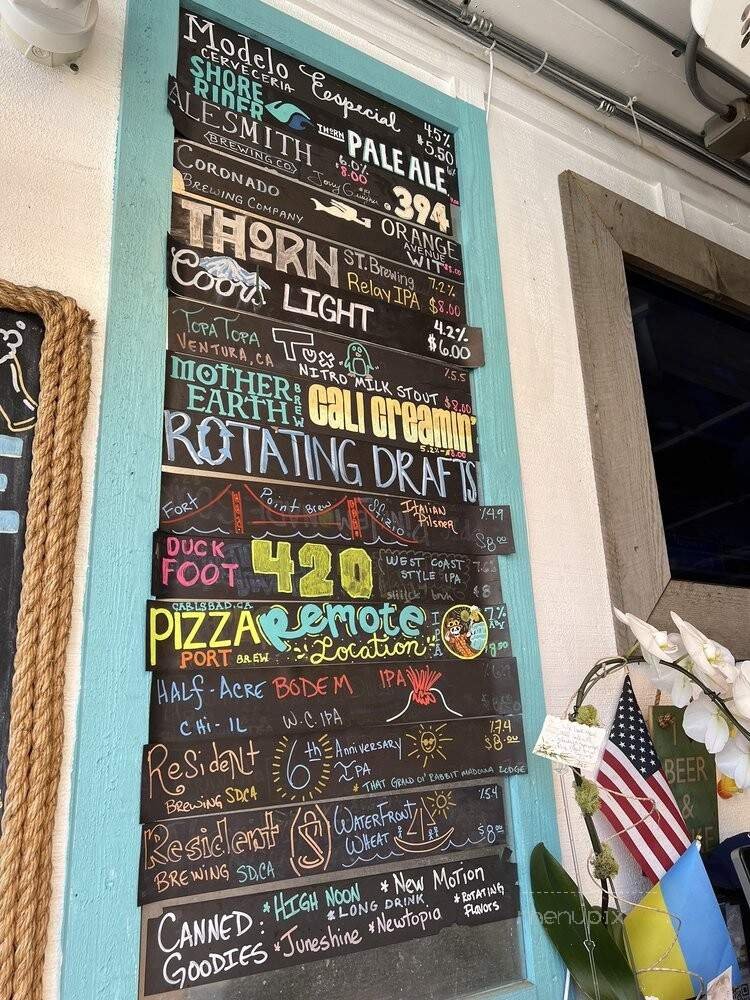 Modelo Eespecial 4.5%
CERVECERIA $5.50
SHORE RIDER THORN PALE ALE
ALESMITH
BREWING CO 6.0% $8.00
Tony Gwynn .394
CORONADO
BREWING COMPANY ORANGE
AVENUE
WIT $8.00
THORN ST. Brewing 7.2%
Relay IPA $8.00
Coors LIGHT 4.2%
$6.00
TOPA TOPA Tux %5.5
VENTURA, CA NITRO MILK STOUT $8.00
MOTHER EARTH BREW CALI CREAMIN'
5.2% $8.00
ROTATING DRAFTS
FORT Point Brew Sfizio Italian Pilsner %4.9
$8.00
DUCK FOOT 420 WEST COAST
STYLE IPA
$8
CARLSBAD, CA
PIZZA PORT BREW Remote Location IPA 7% ABV
HALF-ACRE BODEM IPA
CHI-IL W.C. IPA
Resident 6th Anniversary IPA %7.4
$8.00
BREWING SD,CA * THAT GRAND OL' RABBIT MADONA LODGE
Resident S WATERFRONT WHEAT %5.4
BREWING SD,CA $8.00
CANNED: GOODIES
*HIGH NOON *New Motion
*LONG DRINK *ROTATING FLAVORS
*Juneshine *Newtopia
BEER
&
menupix